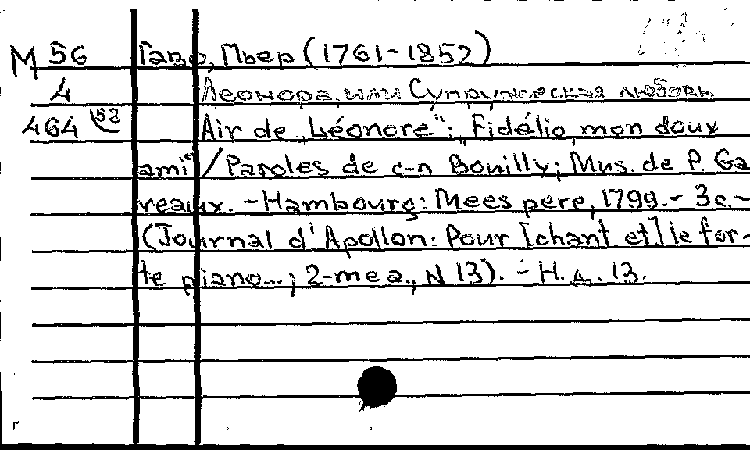 М 56 Гаво, Пьер (1761-1852)
4 Леонора, или Супружеская любовь
464 152 Air de „Léonore“: „Fidélio, mon doux
ami“/Paroles de c-n Bouilly; Mus. de P. Ga
veaux. - Hambourg: Mees pere, 1799. - 3c. -
(Journal d'Apollon: Pour [chant et] le for-
te piano...; 2-me a., N 13). - Н.д. 13.